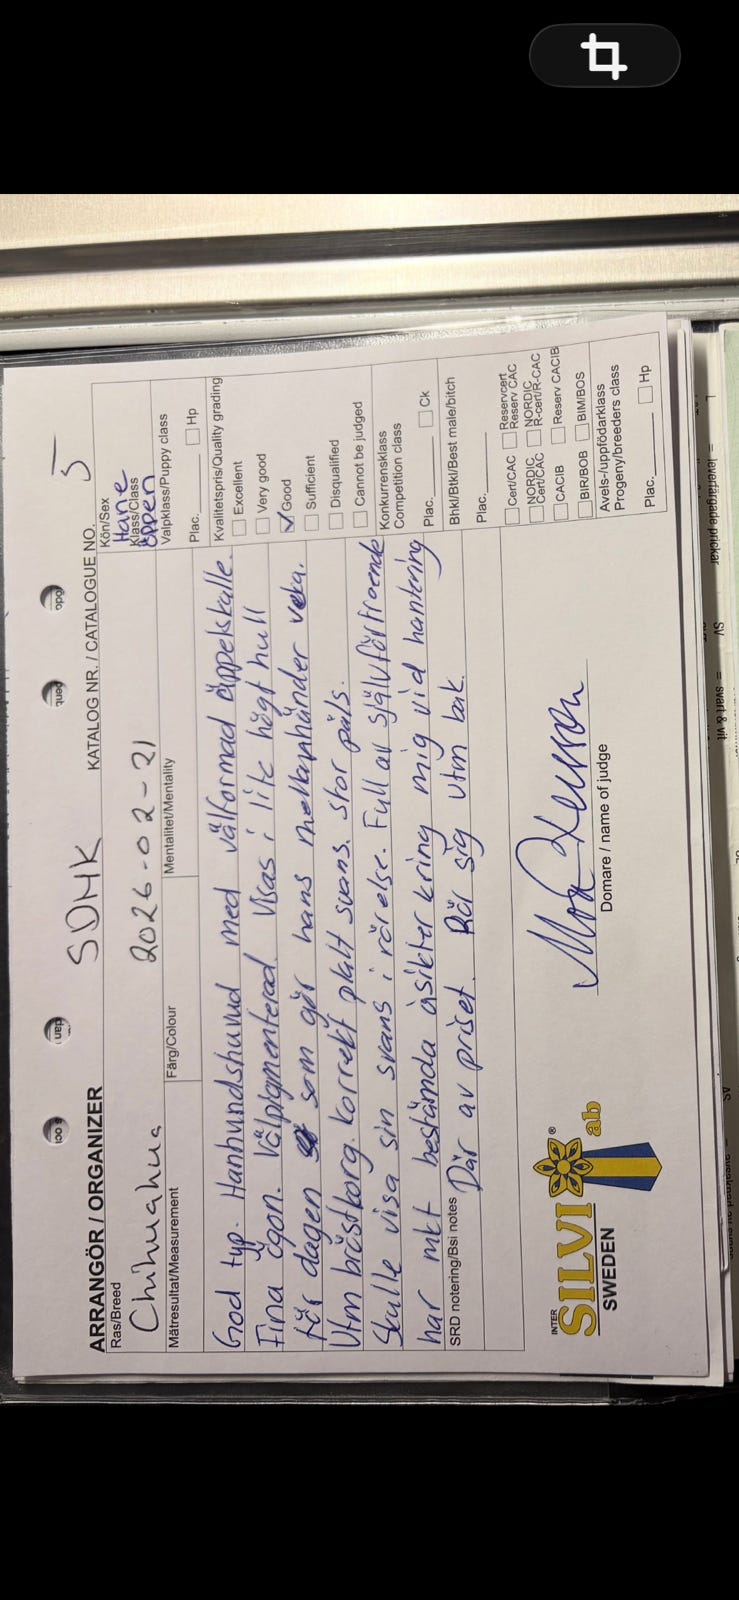 ARRANGÖR / ORGANIZER SDHK KATALOG NR. / CATALOGUE NO. 5
Ras/Breed
Chihuahua 2026-02-21
Kön/Sex
Hane
Klass/Class
öppen
Mätresultat/Measurement Färg/Colour Mentalitet/Mentality
Valpklass/Puppy class
Plac. Hp
God typ. Hanhundshuvud med välformad äppelskalle.
Fina ögon. Välpigmenterad. Visas i lite högt hull
för dagen som gör hans mellanhänder veka.
Utm bröstkorg. korrekt platt svans. stor päls.
Skulle visa sin svans i rörelse. Full av självförtroende
har mkt bestämda åsikter kring mig vid hantering
SRD notering/Bsi notes
Där av priset. Rör sig utm bak.
Kvalitetspris/Quality grading
Excellent
Very good
Good
Sufficient
Disqualified
Cannot be judged
Konkurrensklass
Competition class
Plac. Ck
Bhkl/Btkl/Best male/bitch
Plac.
Cert/CAC Reservcert
Reserv CAC
NORDIC
Cert/CAC NORDIC
R-cert/R-CAC
CACIB Reserv CACIB
BIR/BOB BIM/BOS
Avels-/uppfödarklass
Progeny/breeders class
Plac. Hp
INTER
SILVI ® ab
SWEDEN
Domare / name of judge
L = leverfärgade prickar
SV = svart & vit